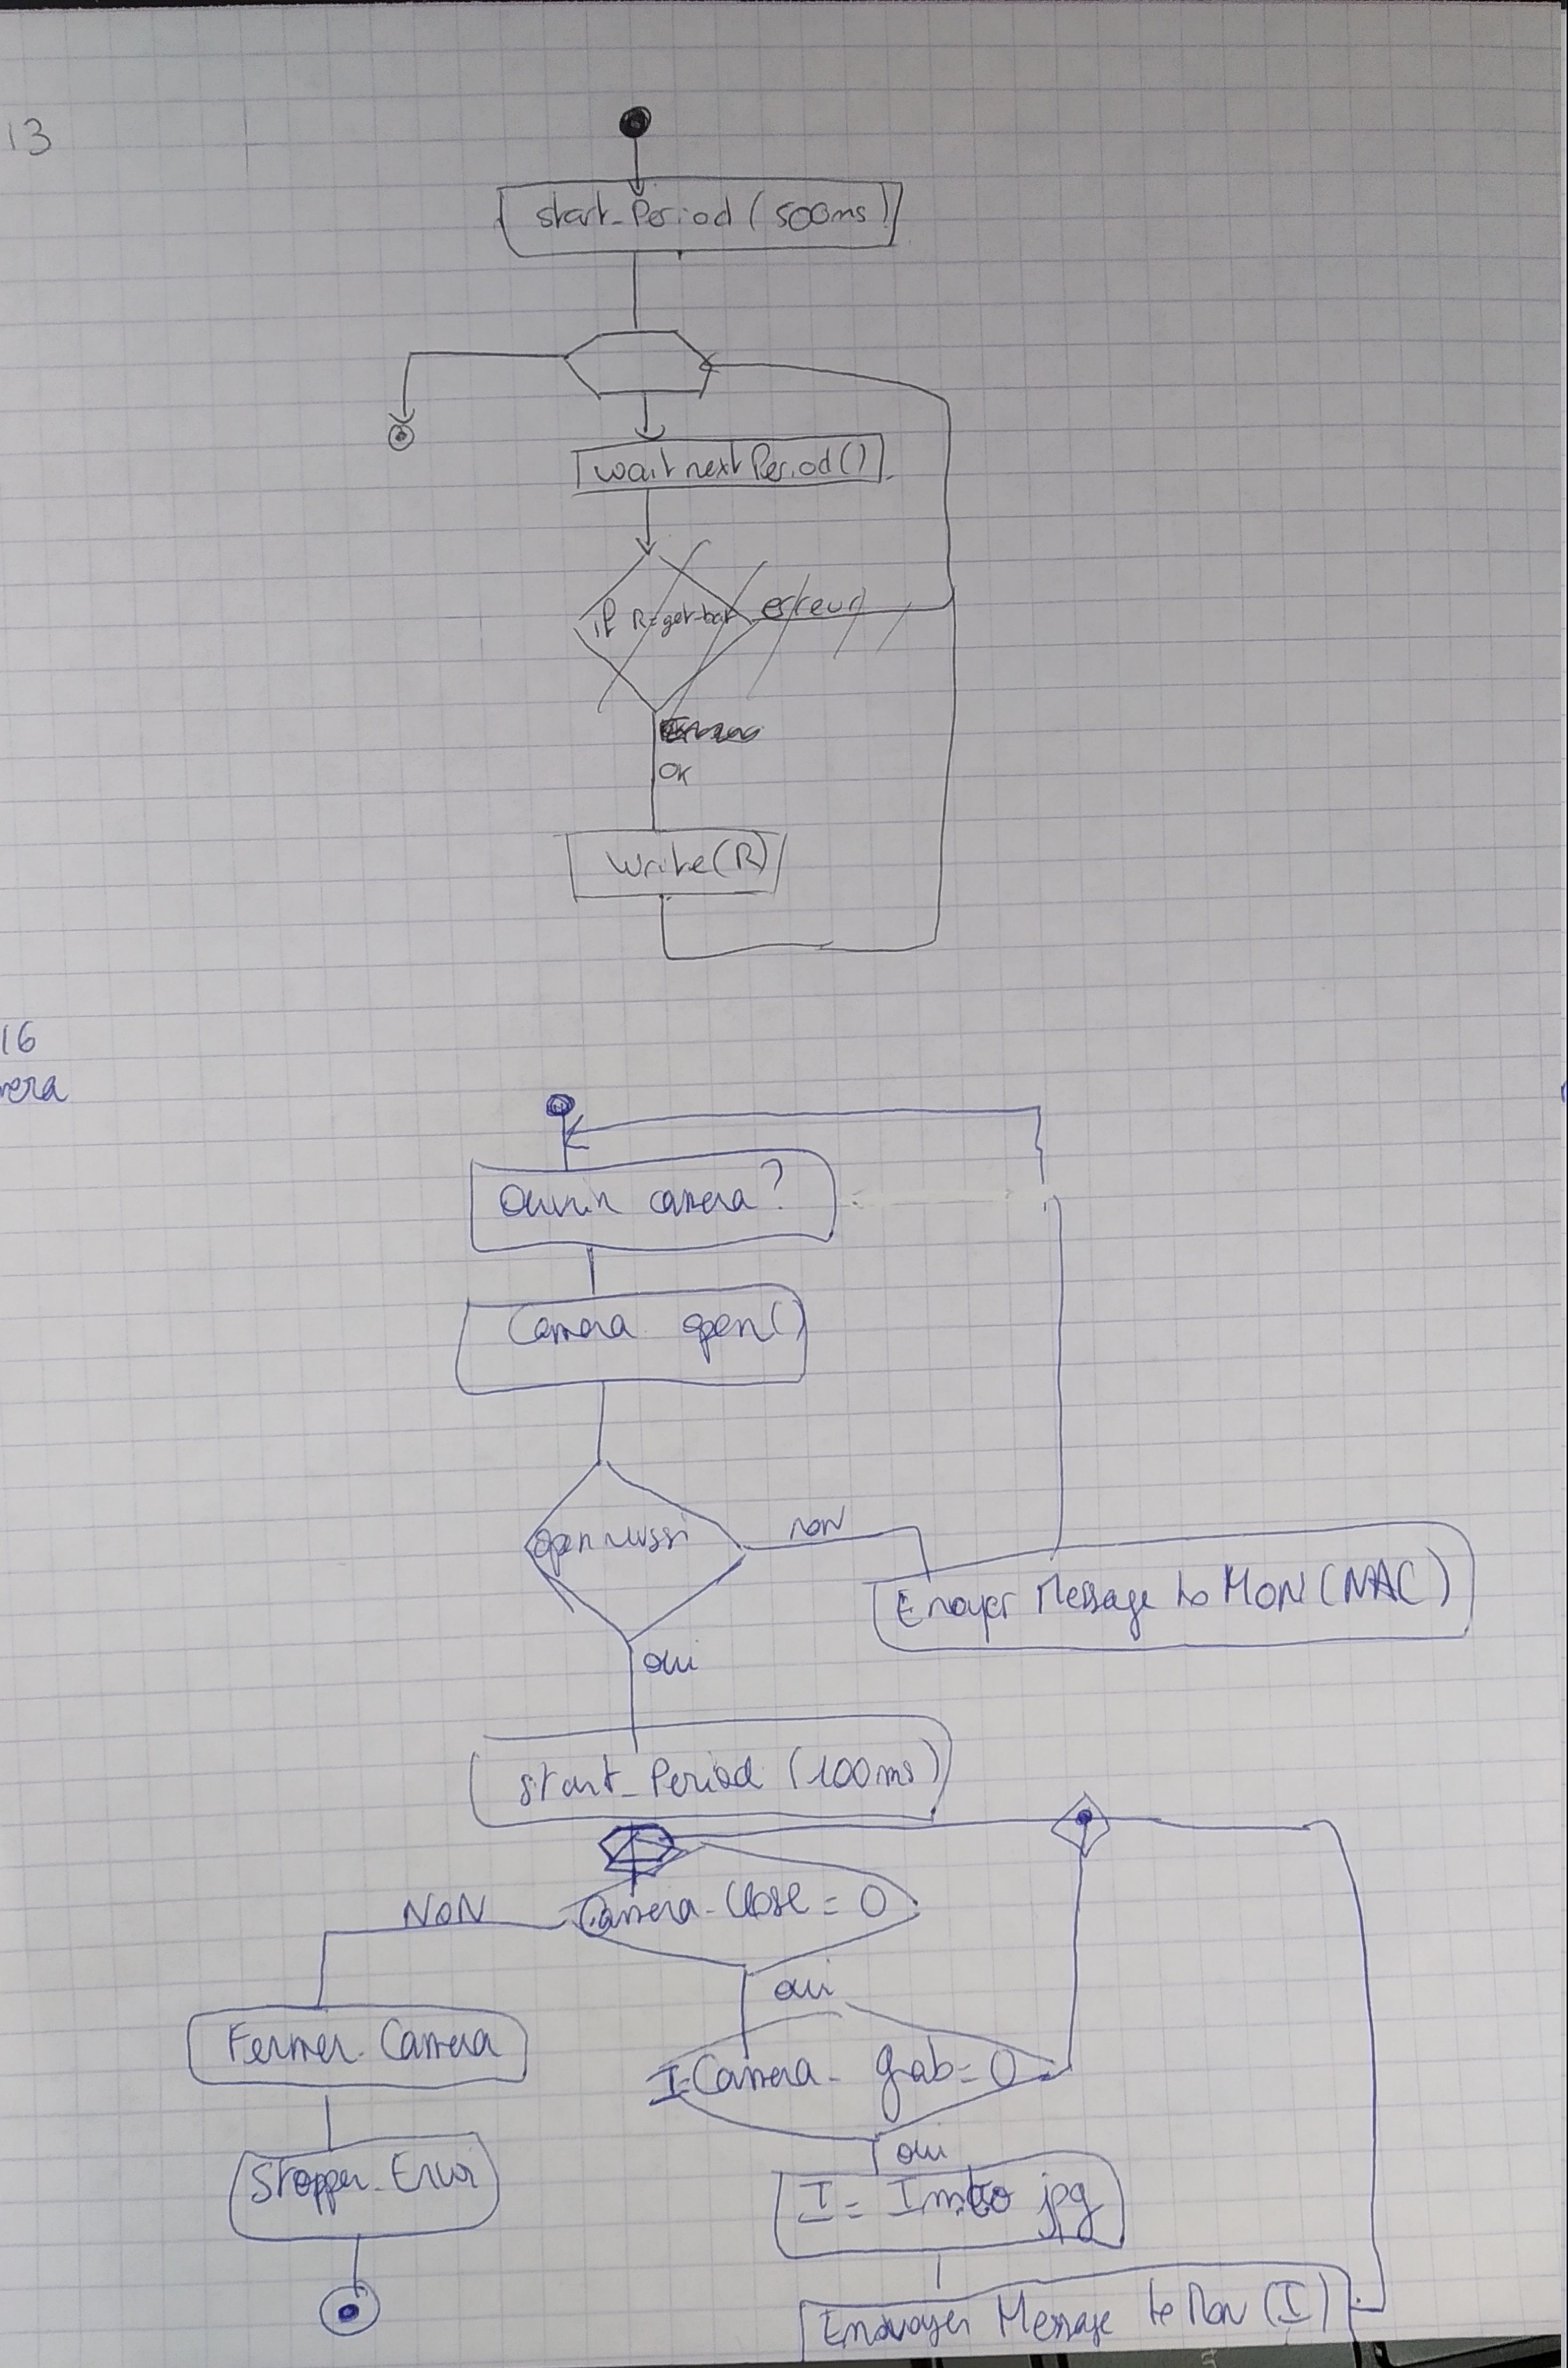 13
start_Period (500ms)
waitnextPeriod()
if R=get-bat erreur
OK
Write(R)
16
mera
Ouvrir camera?
Camera open()
open reussi
non
Envoyer Message to MON (NAC)
oui
start_Period (100ms)
Camera-Close = 0
NON
oui
Fermer-Camera
I=Camera- grab=0
oui
Stopper-Envoi
I= Imto jpg
Envoyer Message to Mon (I)